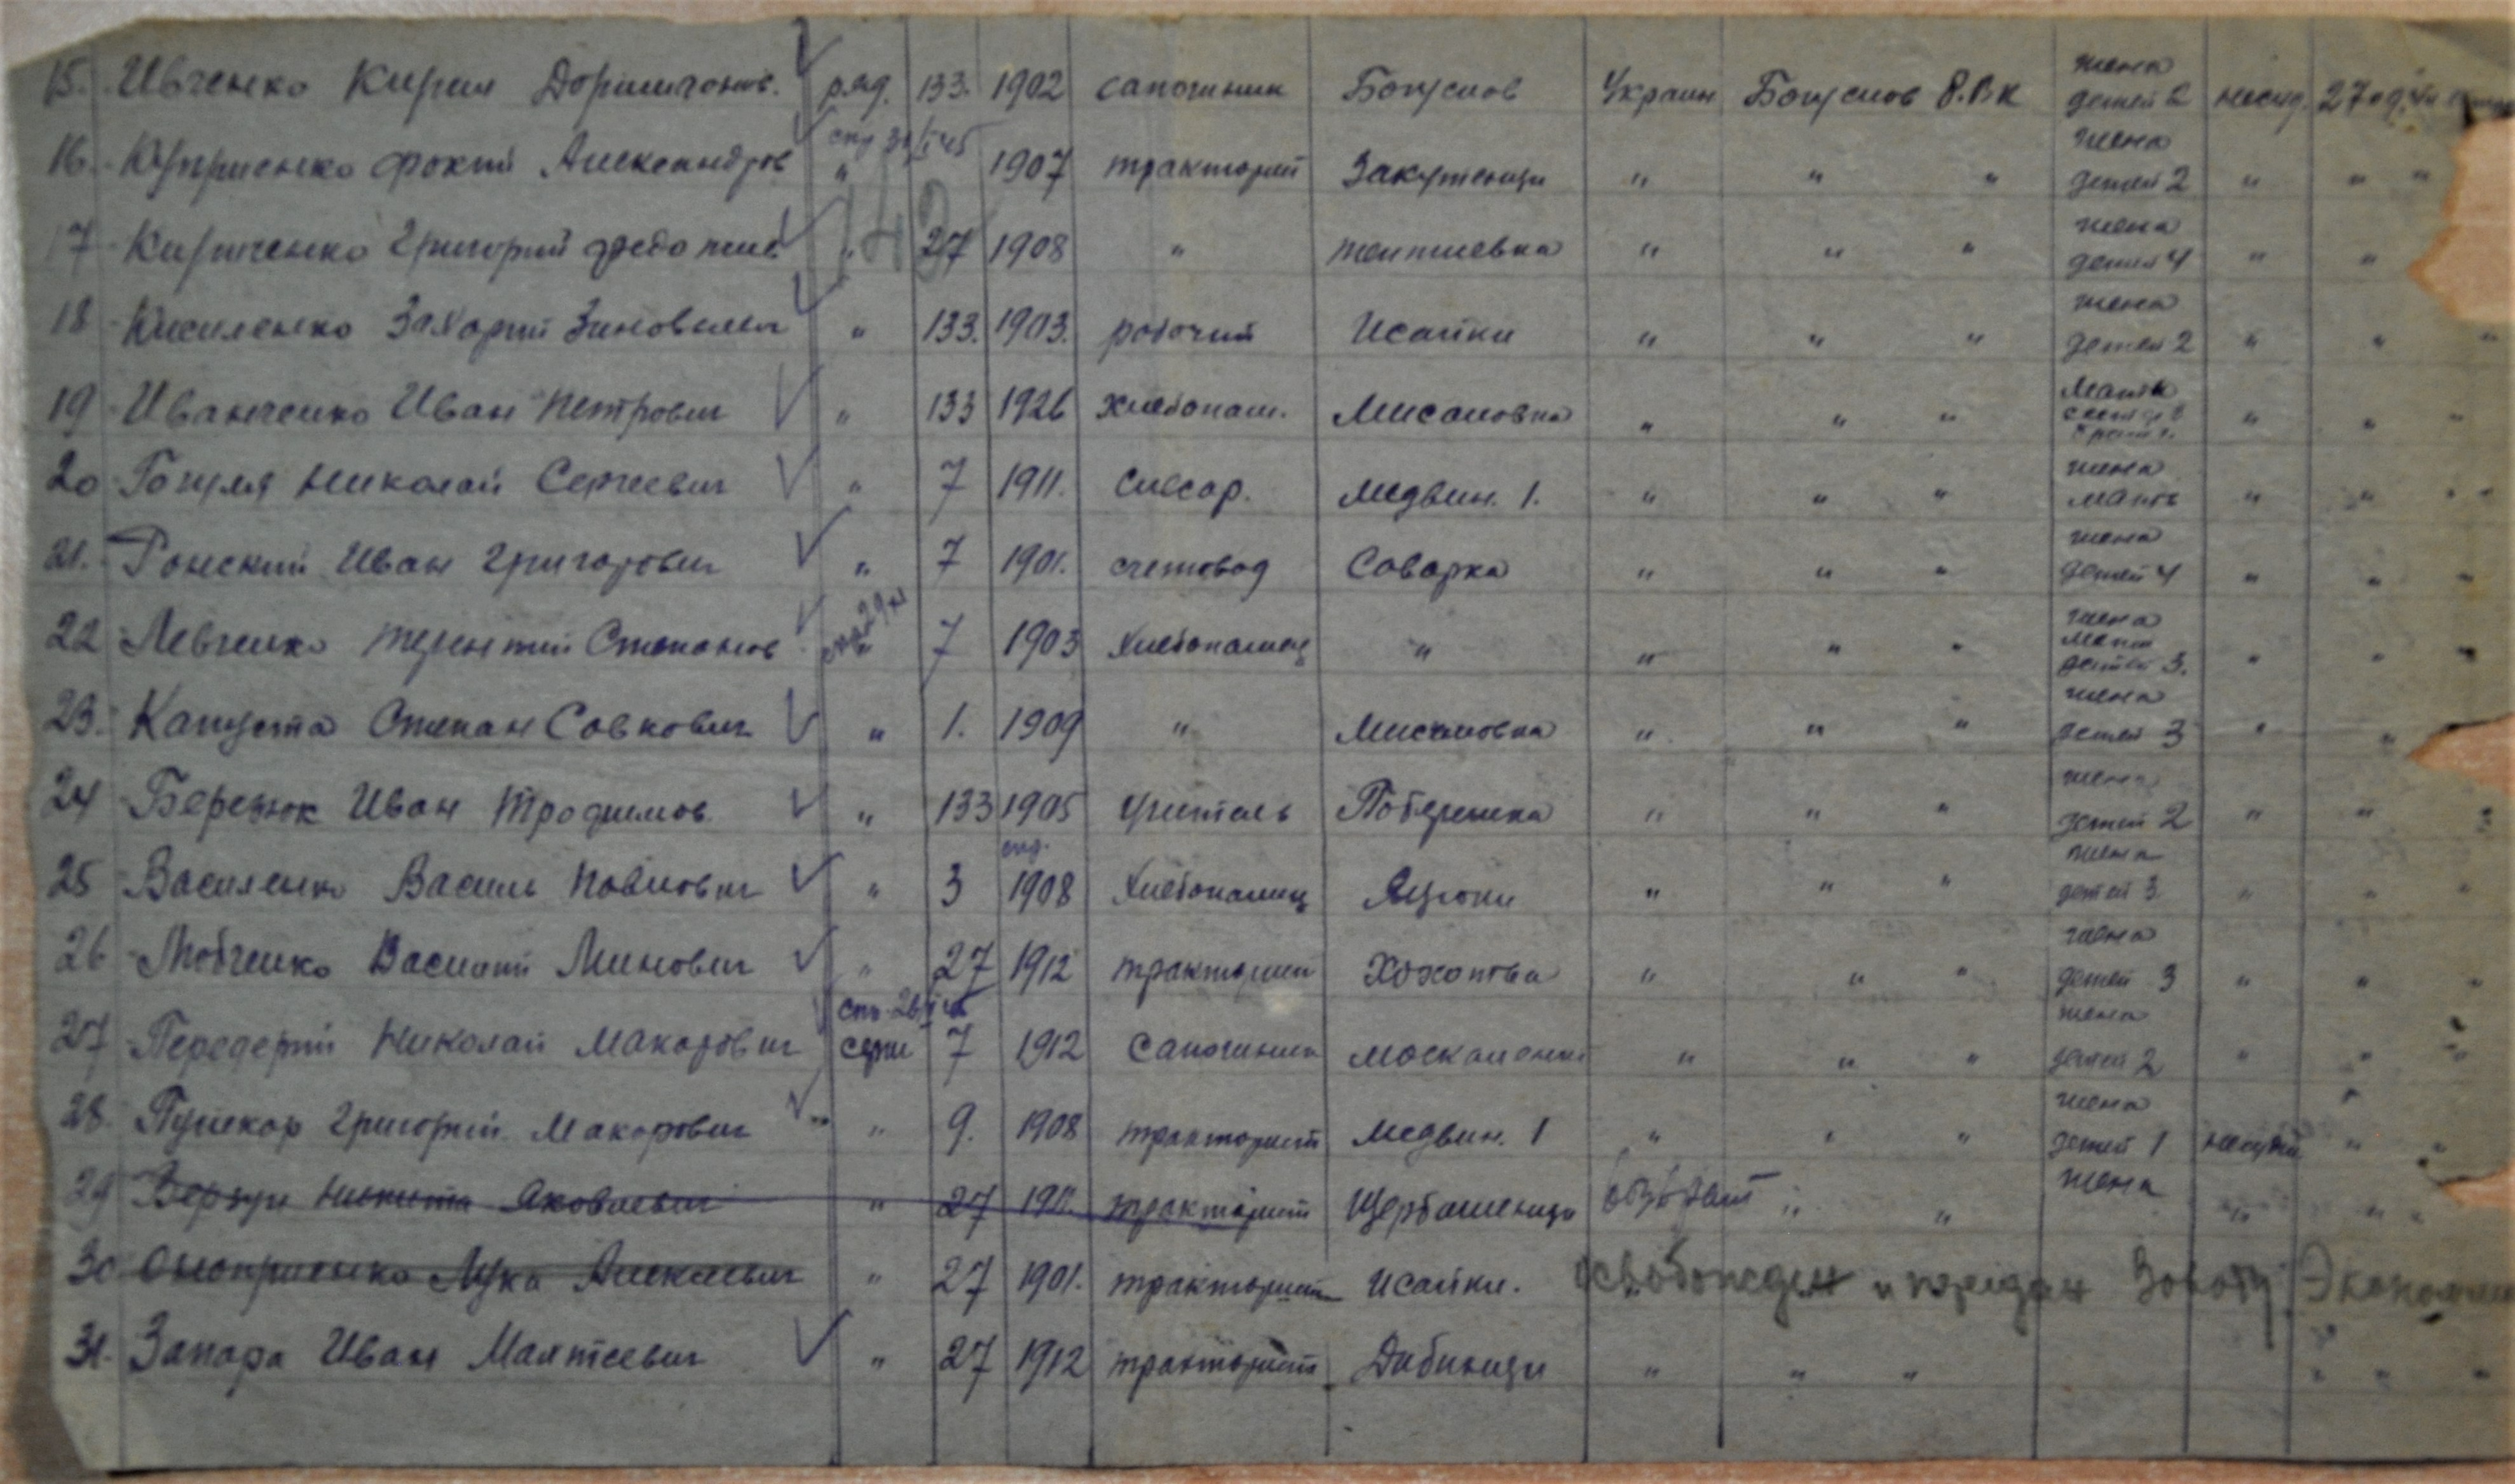 15. Ивченко Кирил ряд. 133. 1902 сапожник Богуслов Украин Богуслов Р.В.К жена детей 2 несуд.
16. Куприенко Фокий Александров " 1907 тракторист Закутенци " " " жена детей 2 " " "
17 Кириченко Григорий " 27 1908 " Тептиевка " " " жена детей 4 " "
18 Кисиленко Захарий Зиновьевич " 133. 1903. рабочий Исайки " " " жена детей 2 " " "
19 Иванченко Иван Петрович " 133 1926 хлебопаш. Мисаловка " " " мать " " "
20 Гогуля Николай Сергеевич " 7 1911. слесар. Медвин. 1. " " " жена мать " " "
21. Ронский Иван Григорович " 7 1901. счетовод Саварка " " " жена детей 4 " " "
22 Левченко Терентий Степанов " 7 1903 хлебопашец " " " " жена мать детей 3. " " "
23. Капуста Степан Савкович " 1. 1909 " Мисаловка " " " жена детей 3 " "
24 Березюк Иван Трофимов. " 133 1905 учитель Побережка " " " жена детей 2 " " "
25 Василенко Василь Павлович " 3 1908 хлебопашец Яцюки " " " жена детей 3 " " "
26 Любченко Василий Минович " 27 1912 тракторист Хохотва " " " жена детей 3 " " "
27 Передерий Николай Макарович серж 7 1912 сапожник Москаленки " " " жена детей 2 " " "
28. Пушкар Григорий Макарович " 9. 1908 тракторист Медвин. 1 " " " жена детей 1 несуд. " "
29 Вергун Никита Яковлевич " 27 1911. тракторист Щербашенци " " жена " " "
30 Оноприенко Лука Алексеевич " 27 1901. тракторист Исайки. освобожден и передан Заводу Экономии
31. Запара Иван Мантеевич " 27 1912 тракторист Дибинци " " " " " "